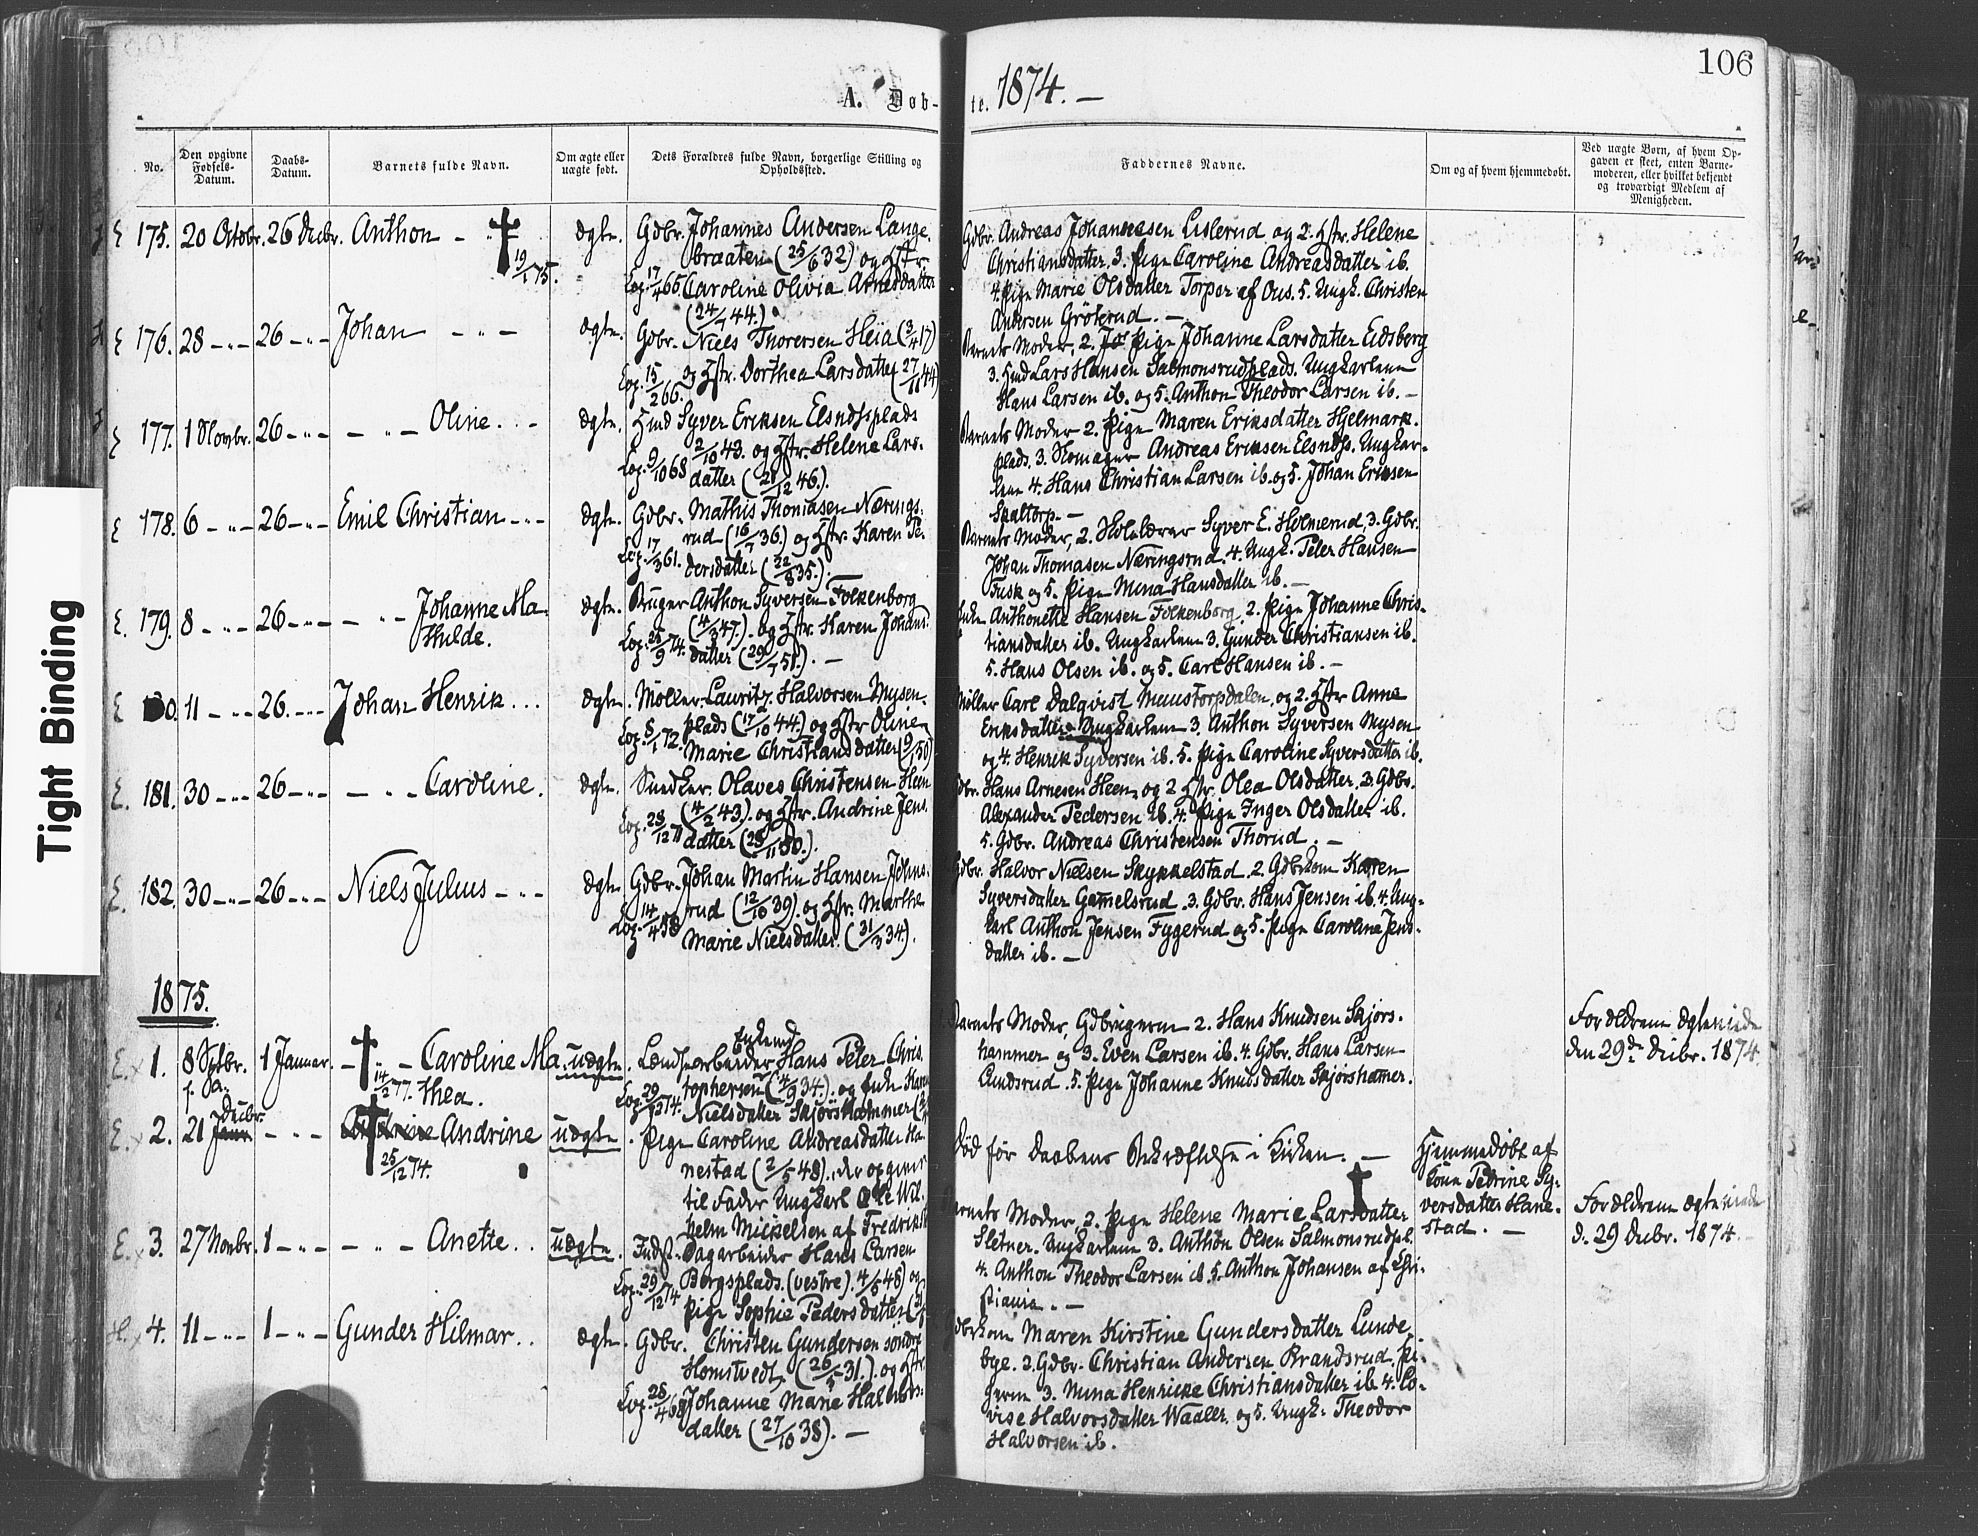 106
A. Døb-
te. 1874. —
No.
Den opgivne Fødsels-Datum.
Daabs-Datum.
Barnets fulde Navn.
Om ægte eller uægte født.
Dets Forældres fulde Navn, borgerlige Stilling og Opholdssted.
Faddernes Navne.
Om og af hvem hjemmedøbt.
Ved uægte Børn, af hvem Op-
gaven er skeet, enten Barne-
moderen, eller hvilket bekjendt
og troværdigt Medlem af
Menigheden.
Tight Binding
E 175. 20 Octobr. 26 Decbr. Anthon — † 19/1 75. ægte.
Gdbr. Johannes Andersen Lange-
braaten (25/6 32) og Hstr.
Caroline Olivia Arnesdatter
(24/7 44.)
Gdbr. Andreas Johannesen Lislerud og 2. Hstr. Helene
Christiansdatter, 3. Pige Caroline Andreasdatter ib.
4. Pige Marie Olsdatter Torper af Ous. 5. Ungk. Christen
Andersen Gröterud. —
E 176. 28 — 26 — Johan — ægte.
Gdbr. Niels Thoresen Heia (3/4 17)
og Hstr. Dorthea Larsdatter (27/11 44)
Barnets Moder, 2. Pige Johanne Larsdatter Eidsberg
3. Hmd Lars Hansen Salmonsrudplads. Ungkarlene
Hans Larsen ib. og 5. Anthon Theodor Larsen ib. —
E 177. 1 Novbr. 26 — — Oline. — ægte.
Hmd Syver Eriksen Elsndsplads
2/10 43. og Hstr. Helene Lars-
datter (21/12 46.).
Barnets Moder 2. Pige Maren Eriksdatter Hjelmark-
plads. 3. Skomager Andreas Eriksen Elsnds. Ungkar-
lene 4. Hans Christian Larsen ib. og 5. Johan Eriksen
Skaltorp. —
E 178. 6 — 26 — Emil Christian — ægte.
Gdbr. Mathis Thomasen Nærings-
rud (16/7 36.) og Hstr. Karen Pe-
dersdatter (22/8 35.). —
Barnets Moder, 2. Skolelærer Syver E. Holmerud, 3. Gdbr.
Johan Thomasen Næringsrud. 4. Ungk. Peter Hansen
Fusk og 5. Pige Mina Hansdatter ib. —
E. 179. 8 — 26 — — Johanne Ma-
thilde. ægte.
Bruger Anthon Syversen Folkenborg
(4/3 47.). og Hstr. Karen Johans-
datter (29/7 51.). —
Enke Anthonette Hansen Folkenborg, 2. Pige Johanne Chris-
tiansdatter ib. Ungkarlene 3. Gunder Christiansen ib.
5. Hans Olsen ib. og 5. Carl Hansen ib. —
E 180. 11 — 26. — Johan Henrik ... ægte.
Møller Lauritz Halvorsen Mysen-
plads (17/10 44) og Hstr Oline
Marie Christiansdatter (9/1 50)
Møller Carl Dalqvist Muustorpdalen, og 2. Hstr Anne
Eriksdatter. Ungkarlene 3. Anthon Syversen Mysen
og 4. Henrik Syversen ib. 5. Pige Caroline Syversdatter ib.
E. 181. 30 — 26 — — Caroline. ægte.
Snedker. Olaves Christensen Heen
(4/2 43.). og Hstr. Andrine Jens-
datter (28/11 50.).
Gdbr. Hans Arnesen Heen, og 2 Hstr. Olea Olsdatter. 3. Gdbr.
Alexander Pedersen ib. 4. Pige Inger Olsdatter ib.
5. Gdbr. Andreas Christensen Thorud. —
E. 182. 30 — 26 — Niels Julius — ægte
Gdbr. Johan Martin Hansen Johns-
rud (12/10 39). og Hstr. Marthe
Marie Nielsdatter. (31/3 34.).
Gdbr. Halvor Nielsen Skykkelstad. 2 Gdbrkone Karen
Syversdatter Gamelsrud. 3. Gdbr. Hans Jensen ib. 4. Ung-
karl Anthon Jensen Fygerud og 5. Pige Caroline Jens-
datter ib. —
1875.
E. x 1. 8 Septbr. f. Aa. 1 Januar. — † 14/2 77. — Caroline Ma-
thea. uægte.
Enkemd
Landsarbeider Hans Peter Chris-
tophersen (4/9 34.). og Enke Karen
Nielsdatter Skjørshammer
Barnets Moder, Gdbrugerne 2. Hans Knudsen Skjørs-
hammer og 3. Even Larsen ib. 4. Gdbr. Hans Larsen
Lundsrud. 5. Pige Johanne Knudsdatter Skjørshamer.
Forældrene ægteviede
den 29de Decbr. 1874.
E. x 2. 21 Decbr. — † 25/12 74. Andrine uægte.
Pige Caroline Andreasdatter Ha-
nestad (2/5 48)., der opgiver
til Fader Ungkarl Ole Wil-
helm Mickelsen af Fredrikst
Død før Daabens Bekræftelse i Kirken. —
Hjemmedøbt af
Kone Petrine Sy-
versdatter Hane-
stad. —
E. x 3. 27 Novbr. 1 — — Anette. . uægte.
Indst. Dagarbeider Hans Larsen
Borgsplads. (vestre). 4/5 48) og
Pige Sophie Pedersdatter
Barnets Moder, 2. Pige Helene Marie Larsdatter †
Sletner. Ungkarlene 3. Anthon Olsen Salmonsrudpl.
4. Anthon Theodor Larsen ib. 5. Anthon Johansen af Chri-
stiania. —
Forældrene ægteviede
d. 29 Decbr. 1874. —
H. x 4. 11 — 1 — Gunder Hilmar. . ægte.
Gdbr. Christen Gundersen søndre
Homstvedt, (26/5 31.). og Hstr.
Johanne Marie Halvors-
datter (27/10 38). —
Gdbrkone Maren Kirstine Gundersdatter Lunde-
bye. 2. Gdbr. Christian Andersen Brandsrud. Pi-
gerne 3. Mina Henricke Christiansdatter ib. 4. Lo-
vise Halvorsdatter Waaler. og 5. Ungk. Theodor
Halvorsen ib.